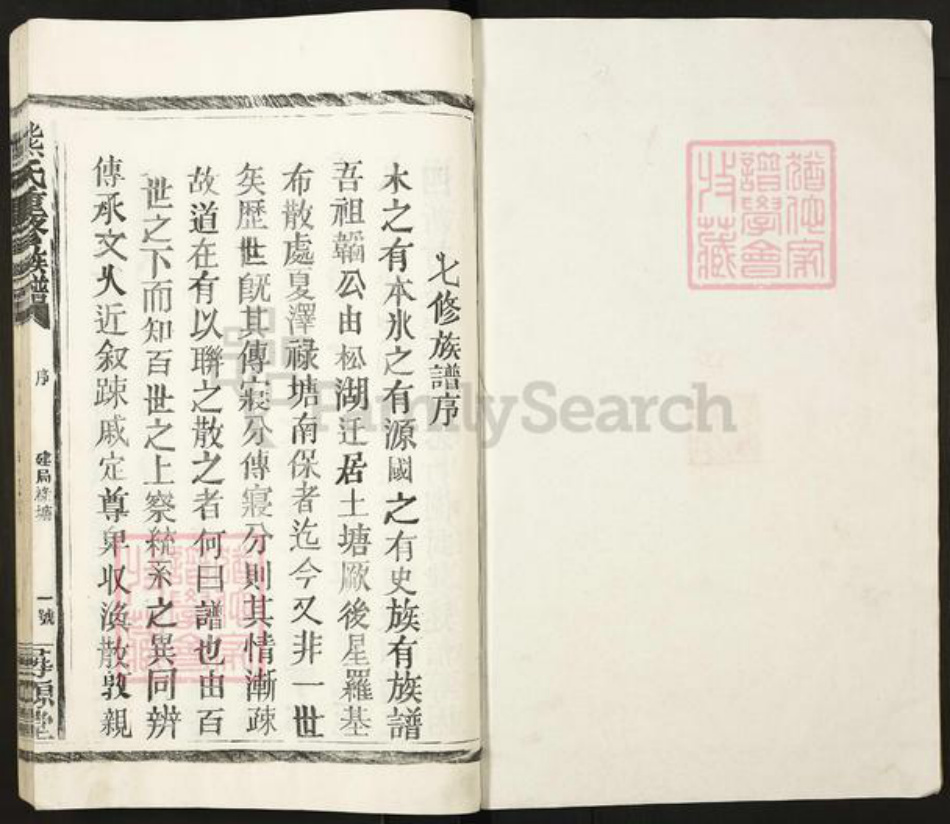 七修族譜序
木之有本水之有源國之有史族有族譜
吾祖韜公由松湖迁居土塘厥後星羅基
布散處夏澤禄塘南保者迄今又非一世
矣歴世既其傳寖分傳寖分則其情漸疎
故道在有以聯之散之者何曰譜也由百
世之下而知百世之上察統系之異同辨
傳承文人近叙踈戚定尊卑收渙散敦親
熊氏重修族譜
序
建局祿塘
一號
猶他家
譜學會
收藏
FamilySearch